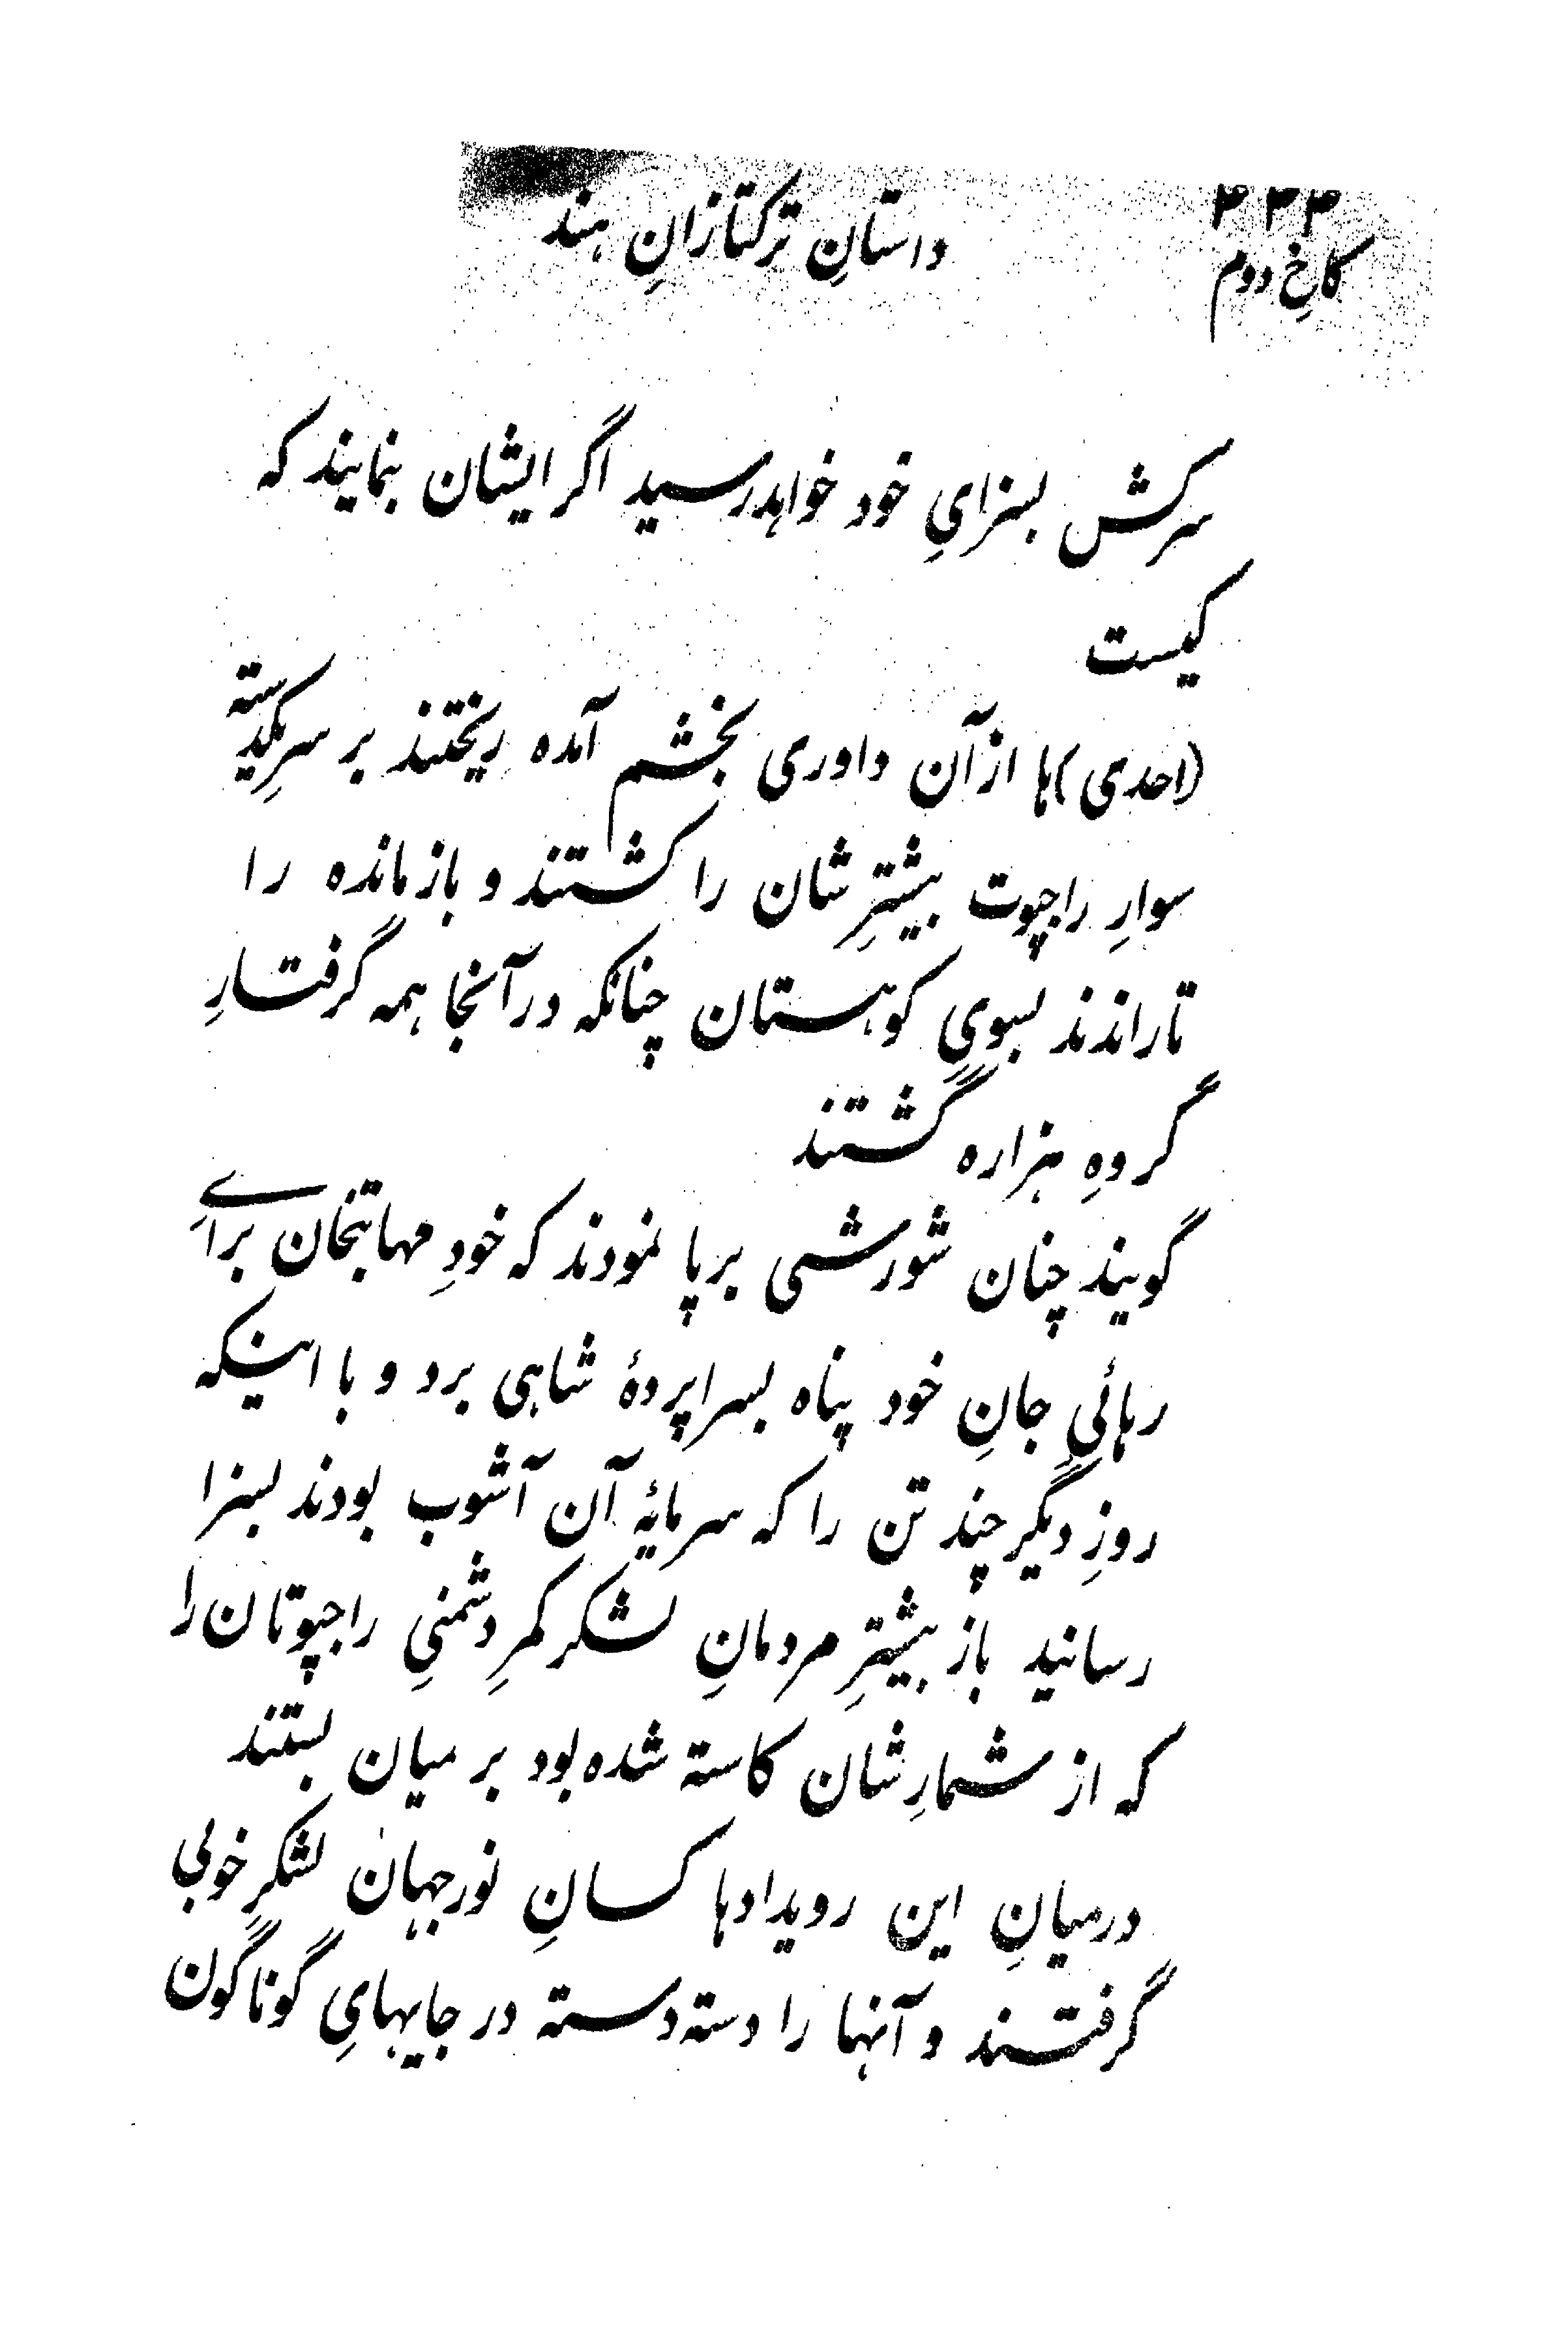 ۳۳۳
کاخِ دوم
داستانِ ترکتازانِ هند
سرکش بسزایِ خود خواهد رسید اگر ایشان بنمایند که
کیست
(احدی)ها از آن داوری بخشم آمده ریختند بر سرِ یکدسته
سوارِ راجپوت بیشترِ شان را کشتند و بازمانده را
تاراندند بسویِ کوهستان چنانکه در آنجا همه گرفتارِ
گروهِ هزاره گشتند
گویند چنان شورشی برپا نمودند که خودِ مهابتخان برایِ
رهائیِ جانِ خود پناه بسراپردهٔ شاهی برد و با اینکه
روزِ دیگر چند تن را که سرمایهٔ آن آشوب بودند بسزا
رسانید باز بیشترِ مردمانِ لشکر کمرِ دشمنیِ راجپوتان را
که از شمارِ شان کاسته شده بود بر میان بستند
درمیانِ این رویدادها کسانِ نورجهان لشکرِ خوبی
گرفتند و آنها را دسته دسته در جایهایِ گوناگون